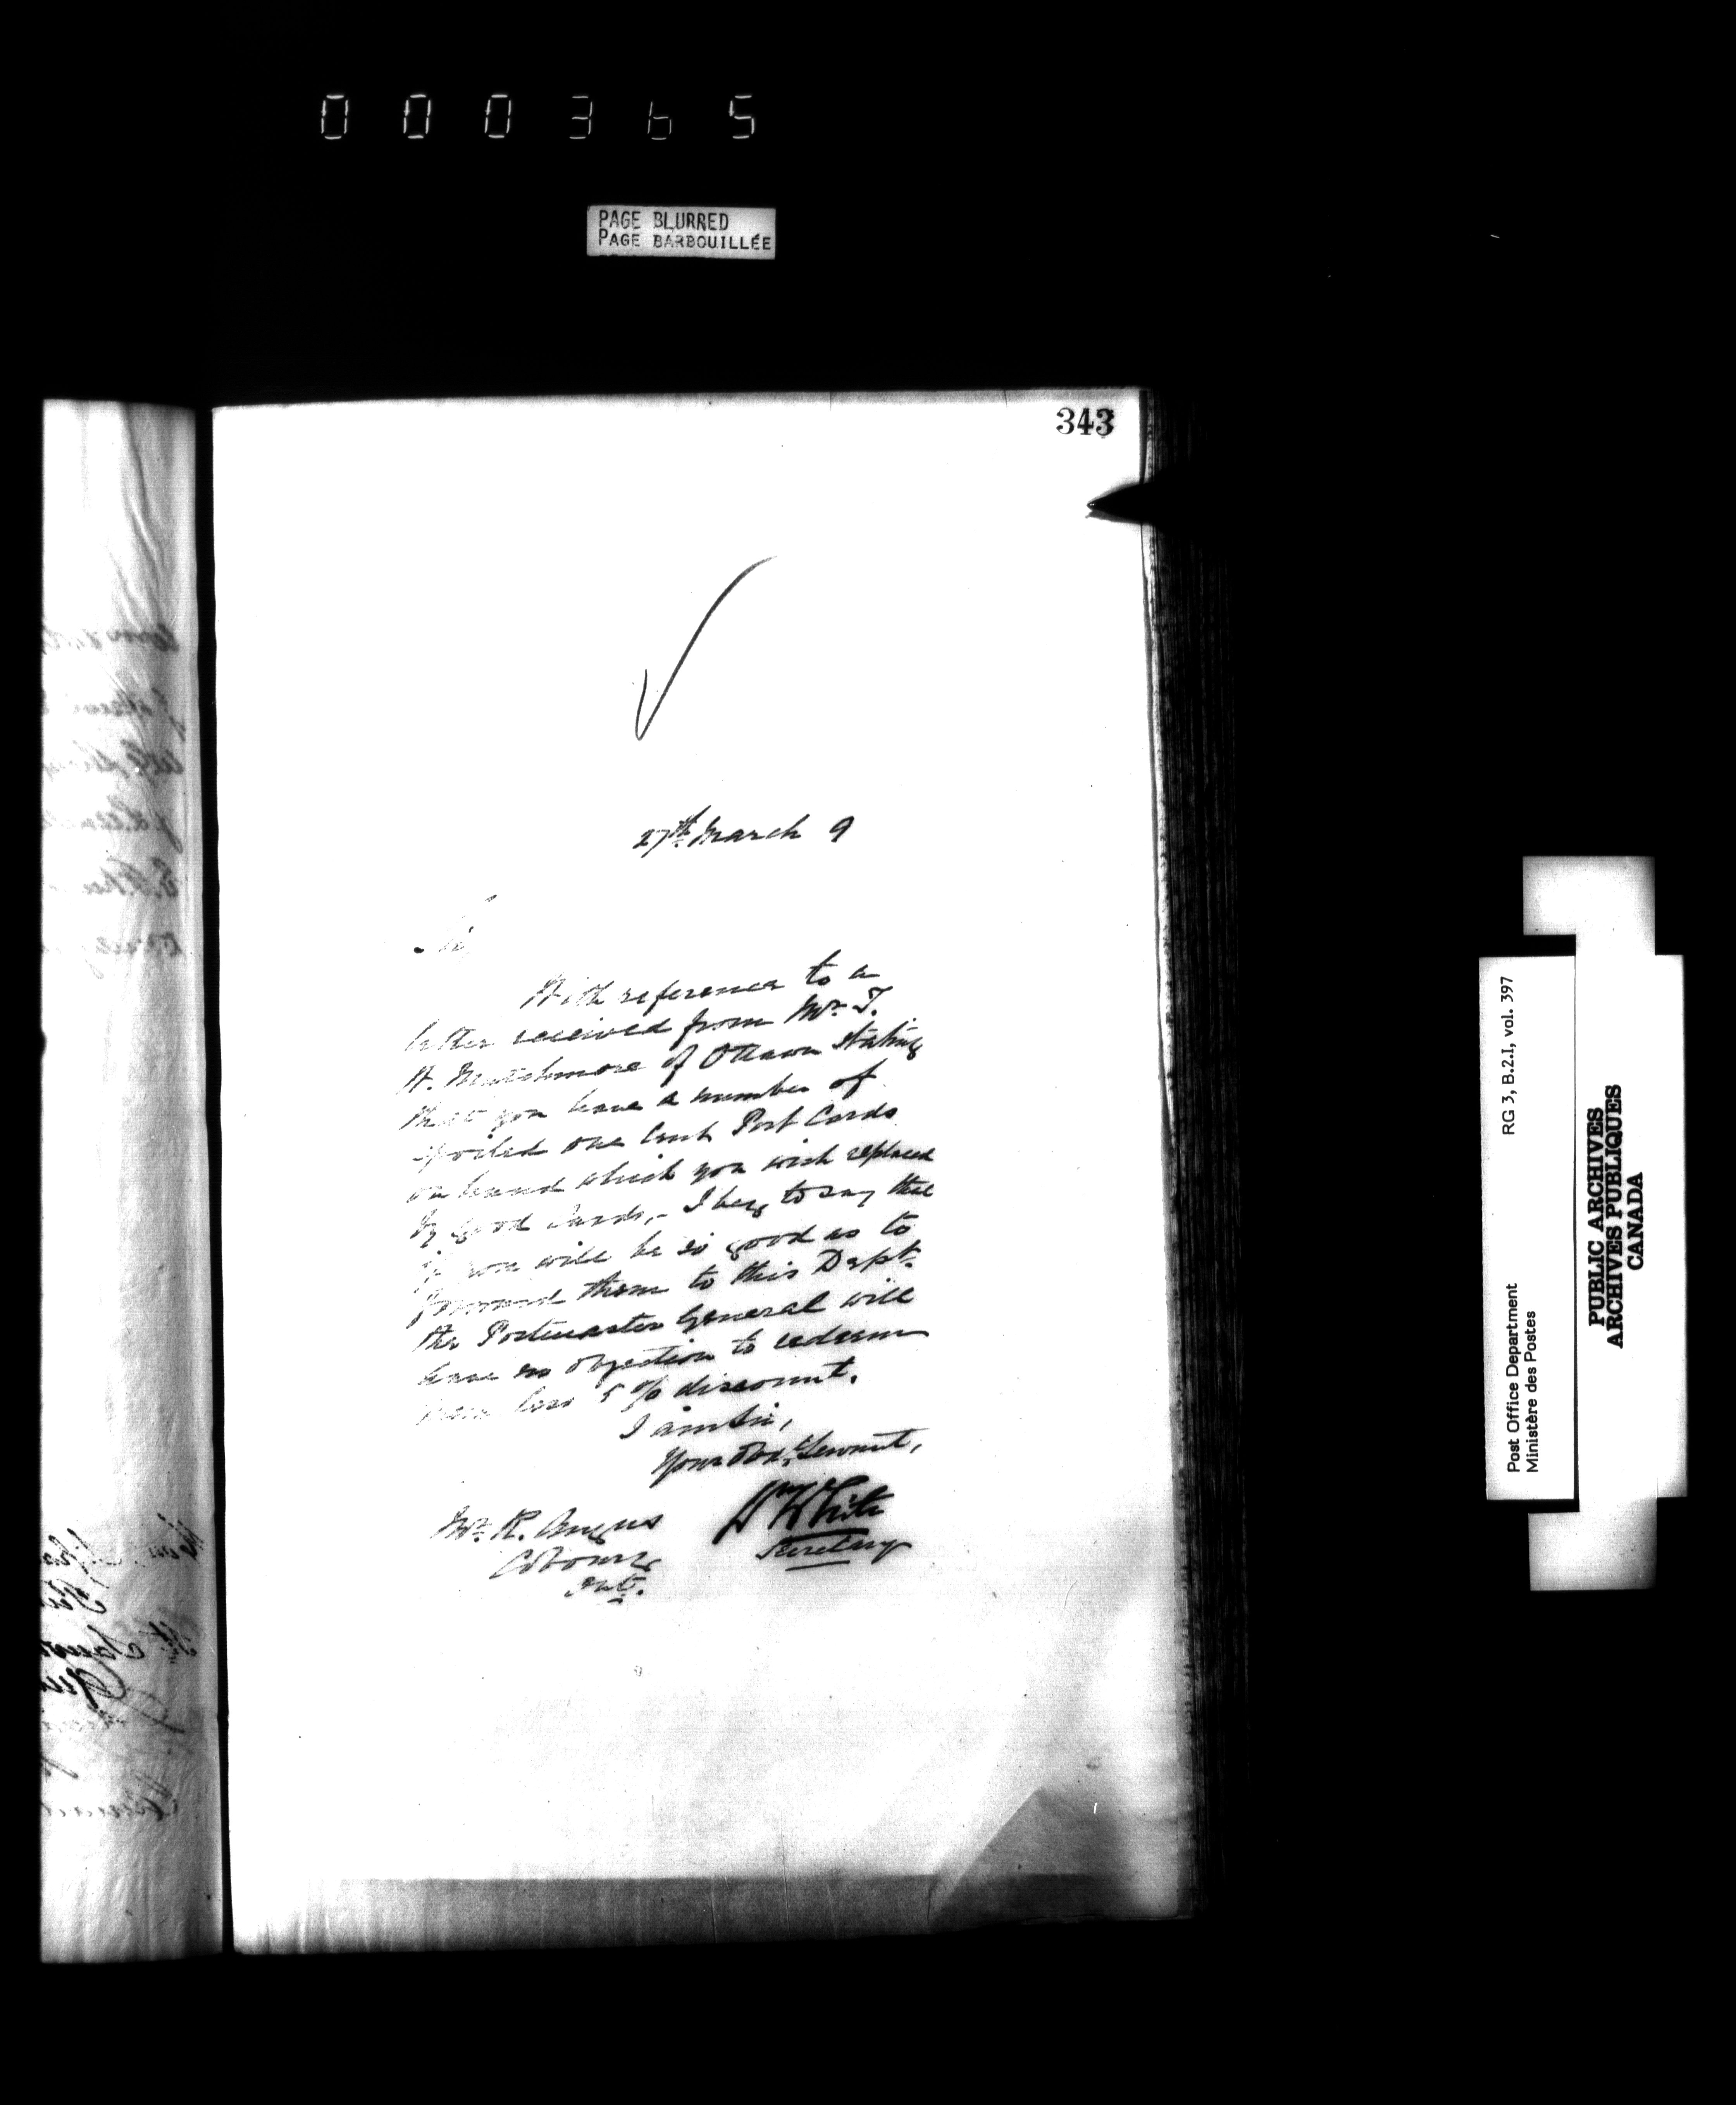 000365
PAGE BLURRED
PAGE BARBOUILLÉE
343
27th March 9
Sir
With reference to a
letter received from Mr. T.
W. Mutchmore of Ottawa stating
that you have a number of
spoiled one Cent Post Cards
on hand which you wish replaced
by good Cards, - I beg to say that
if you will be so good as to
forward them to this Dept.
the Postmaster General will
have no objection to redeem
them less 5 % discount.
I am Sir,
Your Obdt. Servant,
Wm White
Secretary
Mr. R. Angus
Cobourg
Ont.
Post Office Department
Ministère des Postes
RG 3, B.2.I, vol. 397
PUBLIC ARCHIVES
ARCHIVES PUBLIQUES
CANADA